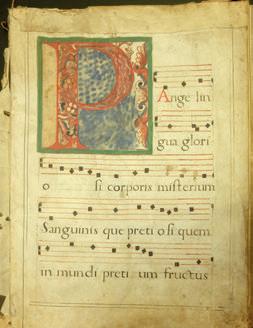 PAnge lin
gua glori
o si corporis misterium
Sanguinis que preti osi quem
in mundi preti um fructus